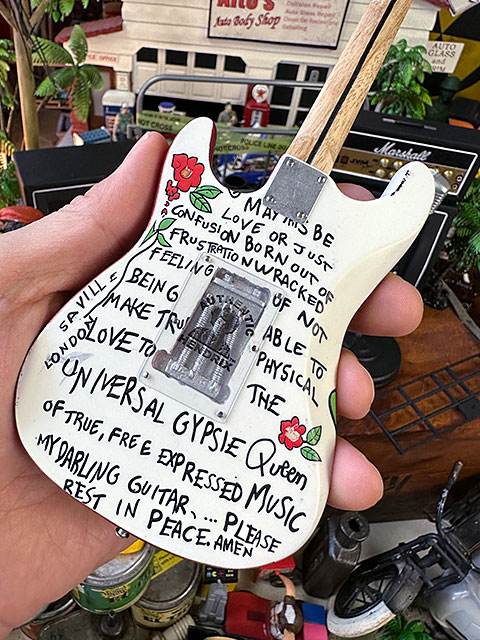 Alto's
Auto Body Shop
Collision Repair
Auto Glass Repair
AUTO
GLASS
POLICE LINE
Marshall
MAY THIS BE
LOVE OR JUST
CONFUSION BORN OUT OF
FRUSTRATION WRACKED
FEELING OF NOT
BEING ABLE TO
MAKE TRU PHYSICAL
LOVE TO THE
UNIVERSAL GYPSIE Queen
OF TRUE, FREE EXPRESSED MUSIC
MY DARLING GUITAR, ... PLEASE
REST IN PEACE. AMEN
SAVILLE
LONDON
AUTHENTIC
HENDRIX